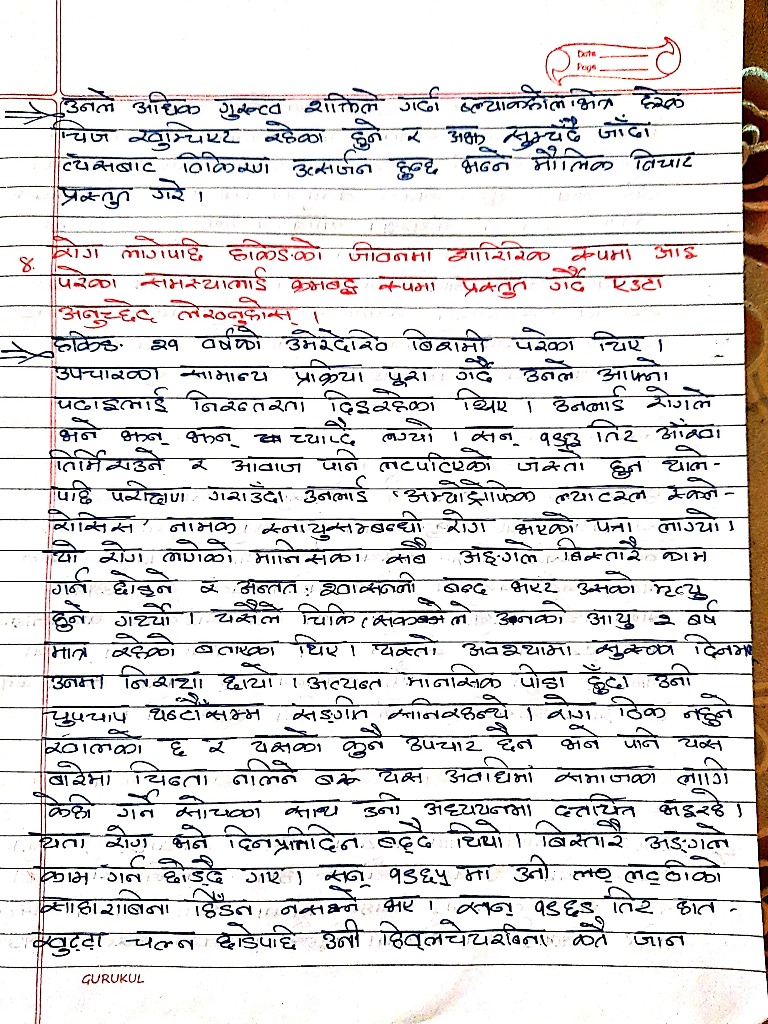 Date
Page
उनले अधिक गुरुत्व शक्तिले गर्दा ब्ल्याकहोलभित्र हरेक
चिज खुम्चिएर रहेका हुने र अझ खुम्चिँदै जाँदा
त्यसबाट विकिरण उत्सर्जन हुन्छ भन्ने मौलिक विचार
प्रस्तुत गरे ।
४. रोग लागेपछि हकिङको जीवनमा शारिरिक रुपमा आइ
परेका समस्यालाई क्रमबद्ध रुपमा प्रस्तुत गर्दै एउटा
अनुच्छेद लेख्नुहोस् ।
हकिङ २१ वर्षको उमेरदेखि बिरामी परेका थिए ।
उपचारका सामान्य प्रक्रिया पूरा गर्दै उनले आफ्नो
पढाइलाई निरन्तरता दिइरहेका थिए । उनलाई रोगले
भने झन् झन् च्याप्दै लग्यो । सन् १९६३ तिर आँखा
तिर्मिराउने र आवाज पनि लटपटिएको जस्तो हुन थाले-
पछि परीक्षण गराउँदा उनलाई 'अम्योट्रोफिक ल्याटरल स्क्ले-
रोसिस' नामक स्नायुसम्बन्धी रोग भएको पत्ता लाग्यो ।
यो रोग लागेको मानिसका सबै अङ्गले बिस्तारै काम
गर्न छोड्ने र अन्तत: श्वासनली बन्द भएर उसको मृत्यु
हुने गर्थ्यो । यसैले चिकित्सकले उनको आयु २ बर्ष
मात्र रहेको बताएका थिए । यस्तो अवस्थामा सुरुका दिनमा
उनमा निराशा छायो । अत्यन्त मानसिक पीडा हुँदा उनी
चुपचाप घन्टौँसम्म सङ्गीत सुनिरहन्थे । रोग ठिक नहुने
खालको छ र यसको कुनै उपचार छैन भने पनि यस
बारेमा चिन्ता नलिने बरु यस अवधिमा समाजका लागि
केही गर्ने सोचका साथ उनी अध्ययनमा दत्तचित्त भइरहे ।
यता रोग भने दिनप्रतिदिन बढ्दै थियो । बिस्तारै अङ्गले
काम गर्न छोड्दै गए । सन् १९६५ मा उनी लट्ठीको
साहाराबिना हिँड्न नसक्ने भए । सन् १९६९ तिर हात-
खुट्टा चल्न छाडेपछि उनी ह्विलचेयरबिना कतै जान
GURUKUL